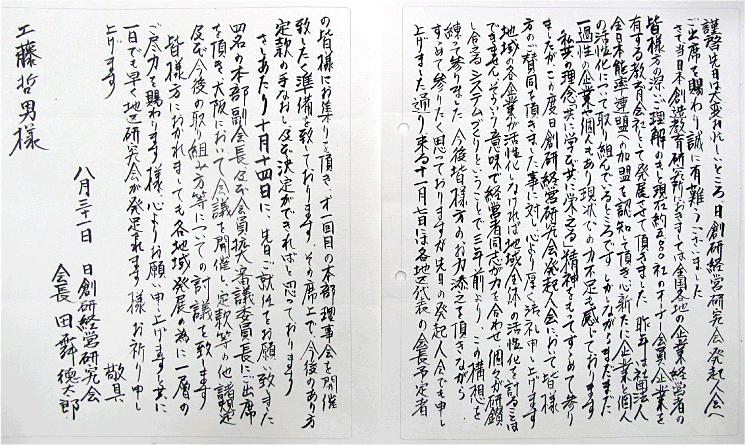 謹啓 先日は大変お忙しいところ、日創研経営研究会発起人会へ
ご出席を賜わり誠に有難うございました
さて当日本創造教育研究所におきましては全国各地の企業経営者の
皆様方の深いご理解のもと現在約五〇〇社のオーナー会員企業を
有する教育会社として発展させて頂きました 昨年は社団法人
全日本能率連盟への加盟を認知して頂き心新たに企業と個人
の活性化について取り組んでいるところです しかしながらまだまだ
一過性の企業や個人もあり現状での力不足も感じております
私共の理念 共に学び共に栄える精神をもってすすめて参り
ましたが この度日創研経営研究会発起人会において皆様
方のご賛同を頂きました事に対し心より厚く御礼申し上げます
地域の各企業が活性しなければ地域全体の活性化を図ることは
できません そういう意味で経営者同志が力を合わせ個々が研鑽
し合えるシステムづくりということで三年前より、この構想を
練って参りました 今後皆様方のお力添えを頂きながら
すすめて参りたく思っておりますが先日の発起人会でも申し
上げました通り 来る十一月七日には各地区代表の会長予定者
の皆様にお集りを頂き、才一回目の本部理事会を開催
致したく準備を致しております、その席上で、今後のあり方
定款の手なおし及び決定ができればと思っております
さしあたり十月十四日に、先日ご就任をお願い致しました
四名の本部副会長及び会員拡大審議委員長にご出席
を頂き大阪において会議を開催し、定款等その他諸規定
及び今後の取り組み方等についての討議を致します
皆様方におかれましても各地域発展の為に一層の
ご尽力を賜わります様、心よりお願い申し上げますと共に
一日でも早く地区研究会が発足されます様お祈り申し
上げます
敬具
八月三十一日 日創研経営研究会
会長 田舞徳太郎
工藤哲男様